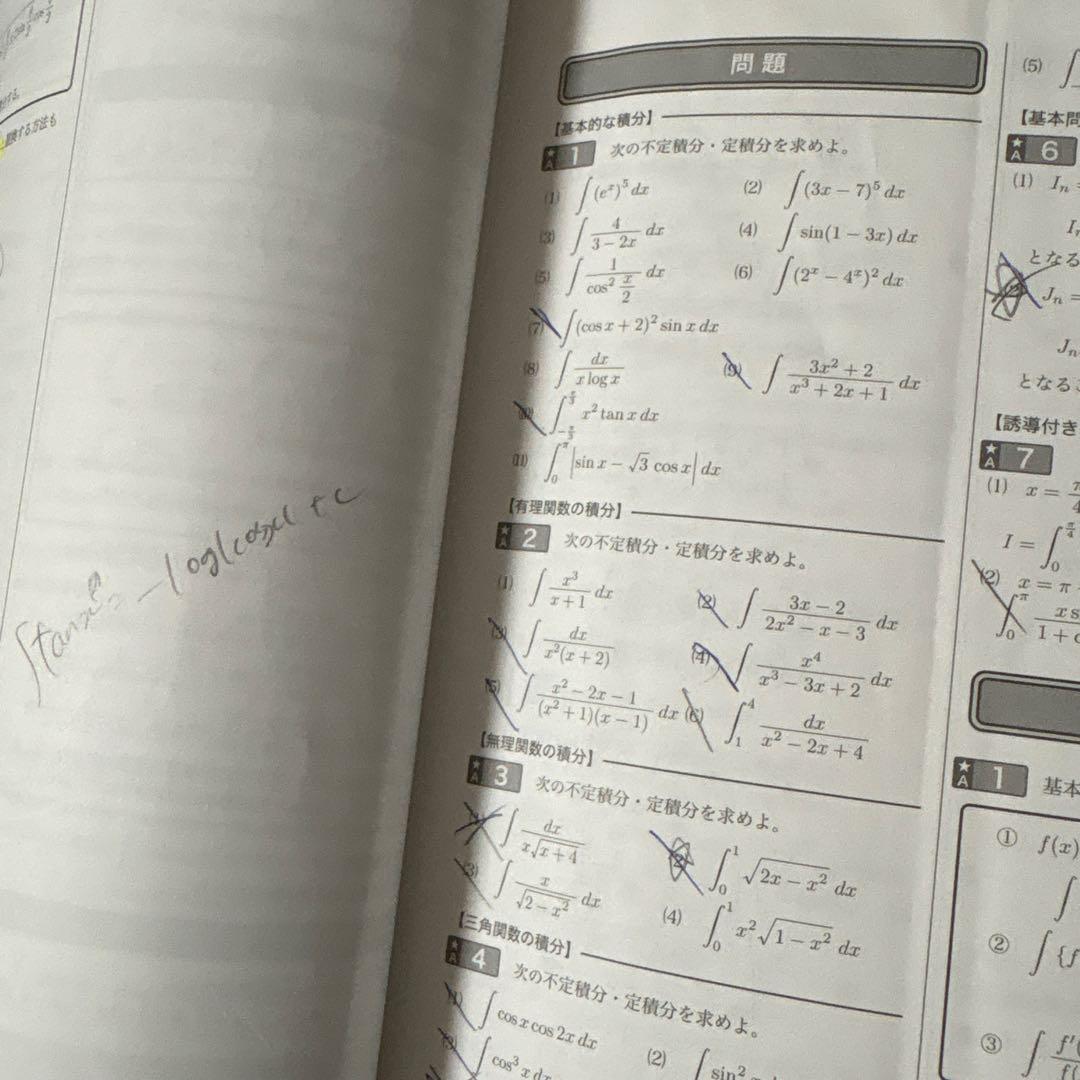 問題
【基本的な積分】
★A 1 次の不定積分・定積分を求めよ。
(1) ∫(eˣ)⁵ dx (2) ∫(3x − 7)⁵ dx
(3) ∫ 4/(3 − 2x) dx (4) ∫ sin(1 − 3x) dx
(5) ∫ 1/(cos² x/2) dx (6) ∫(2ˣ − 4ˣ)² dx
(7) ∫(cos x + 2)² sin x dx
(8) ∫ dx/(x log x) (9) ∫ (3x² + 2)/(x³ + 2x + 1) dx
(10) ∫_{−π/3}^{π/3} x² tan x dx
(11) ∫_0^π |sin x − √3 cos x| dx
【有理関数の積分】
★A 2 次の不定積分・定積分を求めよ。
(1) ∫ x³/(x + 1) dx (2) ∫ (3x − 2)/(2x² − x − 3) dx
(3) ∫ dx/(x²(x + 2)) (4) ∫ x⁴/(x³ − 3x + 2) dx
(5) ∫ (x² − 2x − 1)/((x² + 1)(x − 1)) dx (6) ∫_1^4 dx/(x² − 2x + 4)
【無理関数の積分】
★A 3 次の不定積分・定積分を求めよ。
(1) ∫ dx/(x√(x + 4)) (2) ∫_0^1 √(2x − x²) dx
(3) ∫ x/√(2 − x²) dx (4) ∫_0^1 x²√(1 − x²) dx
【三角関数の積分】
★A 4 次の不定積分・定積分を求めよ。
(1) ∫ cos x cos 2x dx (2) ∫ sin²
(3) ∫ cos³ x dx
(5) ∫
【基本問
★A 6
(1) Iₙ =
となる
Jₙ =
Jₙ
となるこ
【誘導付き
★A 7
(1) x = π/4
I = ∫_0^{π/4}
(2) x = π
∫_0^π x s/1 + c
★A 1 基本
① f(x)
∫
② ∫ {f
③ ∫ f′(/f(
∫tanx = −log|cosx| + c
置換する方法も